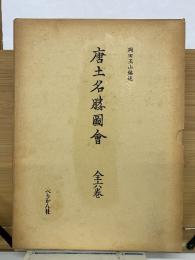 岡田玉山編述
唐土名勝圖會
全六巻
ぺりかん社